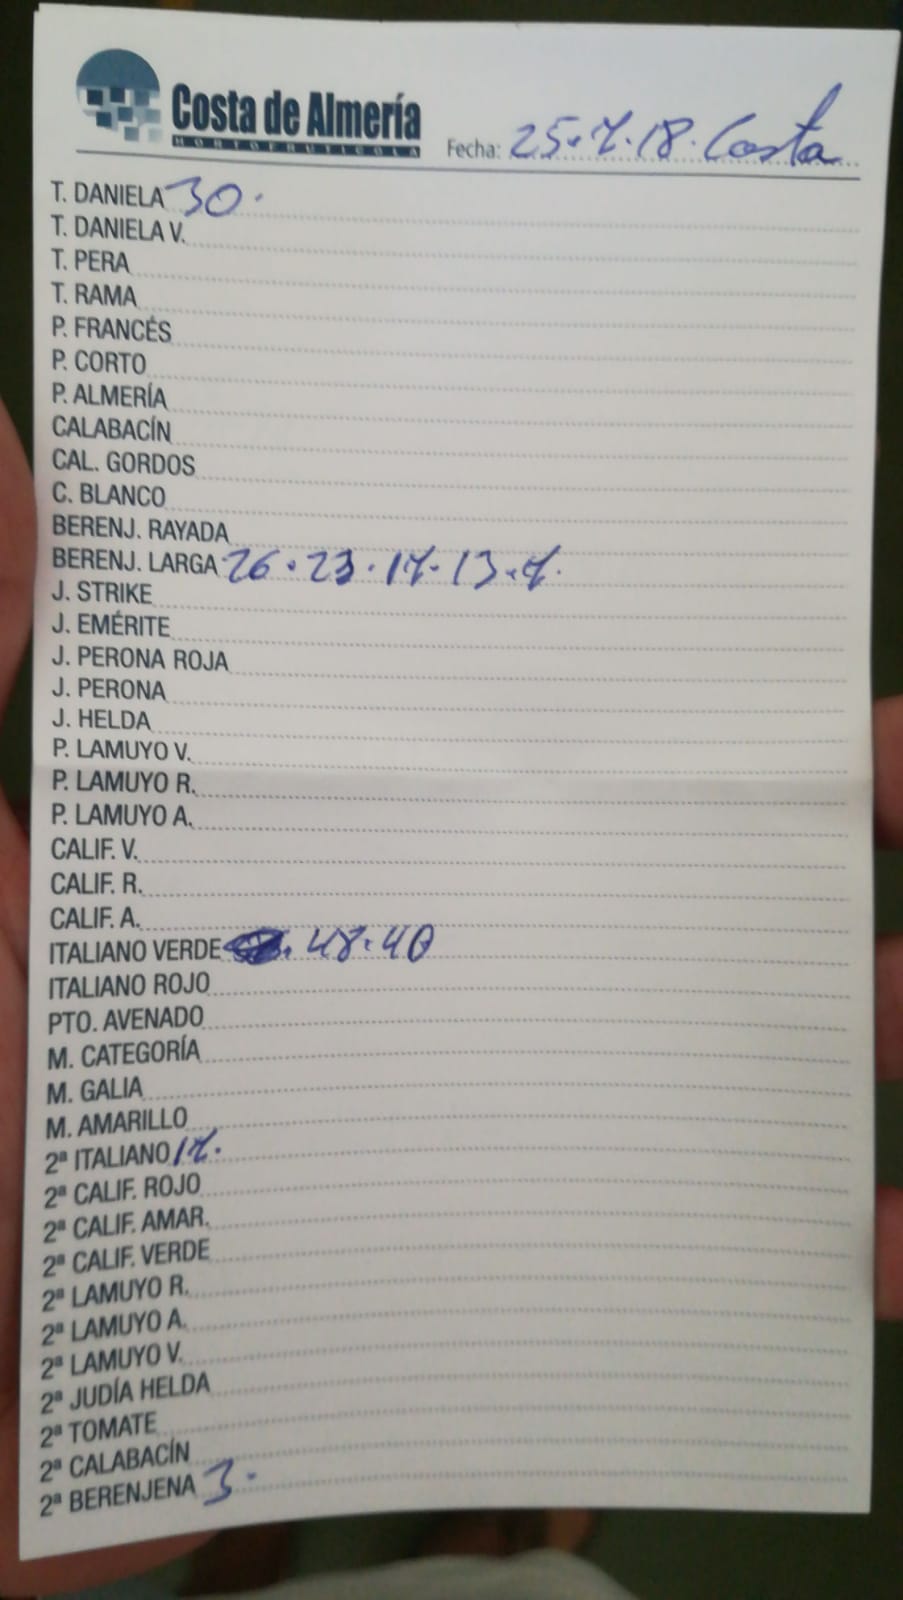 Costa de Almería
HORTOFRUTICOLA
Fecha: 25.7.18. Costa
T. DANIELA 30.
T. DANIELA V.
T. PERA
T. RAMA
P. FRANCÉS
P. CORTO
P. ALMERÍA
CALABACÍN
CAL. GORDOS
C. BLANCO
BERENJ. RAYADA
BERENJ. LARGA 26.23.17.13.7.
J. STRIKE
J. EMÉRITE
J. PERONA ROJA
J. PERONA
J. HELDA
P. LAMUYO V.
P. LAMUYO R.
P. LAMUYO A.
CALIF. V.
CALIF. R.
CALIF. A.
ITALIANO VERDE . 48.40
ITALIANO ROJO
PTO. AVENADO
M. CATEGORÍA
M. GALIA
M. AMARILLO
2ª ITALIANO 17.
2ª CALIF. ROJO
2ª CALIF. AMAR.
2ª CALIF. VERDE
2ª LAMUYO R.
2ª LAMUYO A.
2ª LAMUYO V.
2ª JUDÍA HELDA
2ª TOMATE
2ª CALABACÍN
2ª BERENJENA 3.